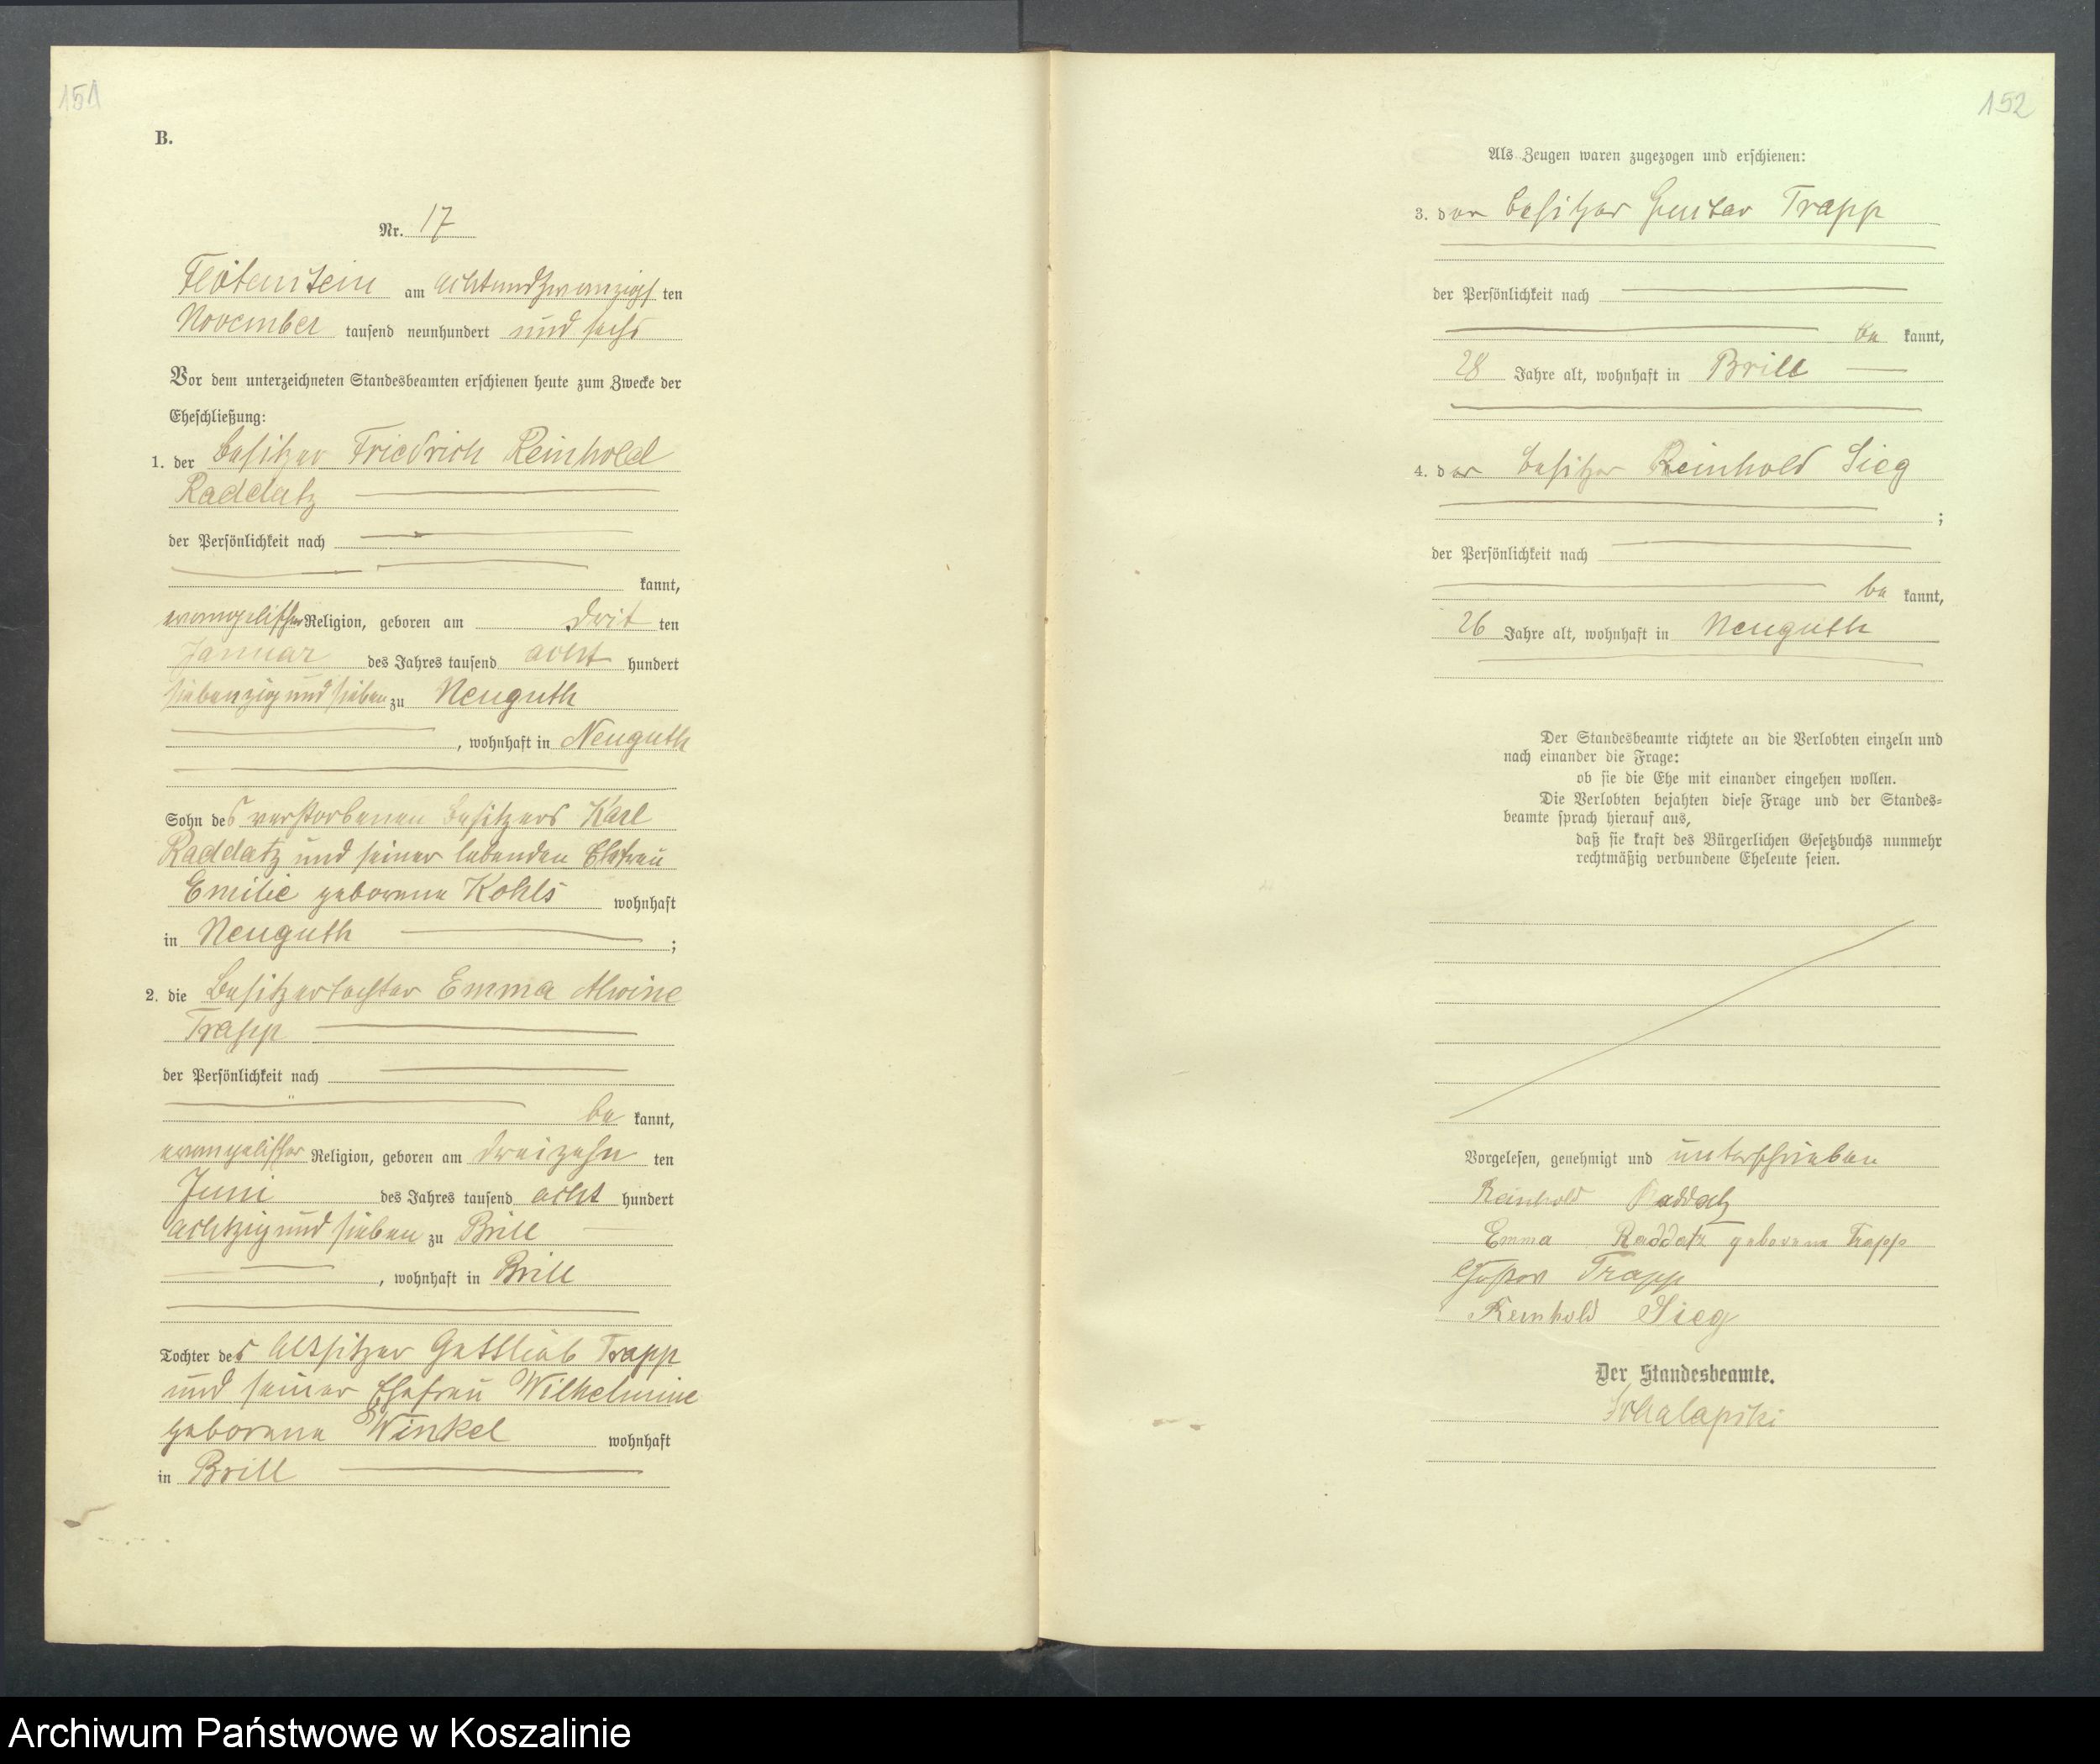 151
B.
Nr. 17
Flötenstein am achtundzwanzigs ten
November tausend neunhundert und sechs
Vor dem unterzeichneten Standesbeamten erschienen heute zum Zwecke der
Eheschließung:
1. der Besitzer Friedrich Reinhold
Raddatz
der Persönlichkeit nach
kannt,
evangelischer Religion, geboren am drit ten
Januar des Jahres tausend acht hundert
siebenzig und sieben zu Neuguth
, wohnhaft in Neuguth
Sohn des verstorbenen Besitzers Karl
Raddatz und seiner lebenden Ehefrau
Emilie geborene Kohls wohnhaft
in Neuguth ;
2. die Besitzertochter Emma Alwine
Trapp
der Persönlichkeit nach
be kannt,
evangelischer Religion, geboren am dreizehn ten
Juni des Jahres tausend acht hundert
achtzig und sieben zu Brill
, wohnhaft in Brill
Tochter des Altsitzer Gottlieb Trapp
und seiner Ehefrau Wilhelmine
geborene Winkel wohnhaft
in Brill
152
Als Zeugen waren zugezogen und erschienen:
3. der Besitzer Gustav Trapp
der Persönlichkeit nach
be kannt,
28 Jahre alt, wohnhaft in Brill
4. der Besitzer Reinhold Sieg
;
der Persönlichkeit nach
be kannt,
26 Jahre alt, wohnhaft in Neuguth
Der Standesbeamte richtete an die Verlobten einzeln und
nach einander die Frage:
ob sie die Ehe mit einander eingehen wollen.
Die Verlobten bejahten diese Frage und der Standes-
beamte sprach hierauf aus,
daß sie kraft des Bürgerlichen Gesetzbuchs nunmehr
rechtmäßig verbundene Eheleute seien.
Vorgelesen, genehmigt und unterschrieben
Reinhold Raddatz
Emma Raddatz geborene Trapp
Gustav Trapp
Reinhold Sieg
Der Standesbeamte.
Archiwum Państwowe w Koszalinie